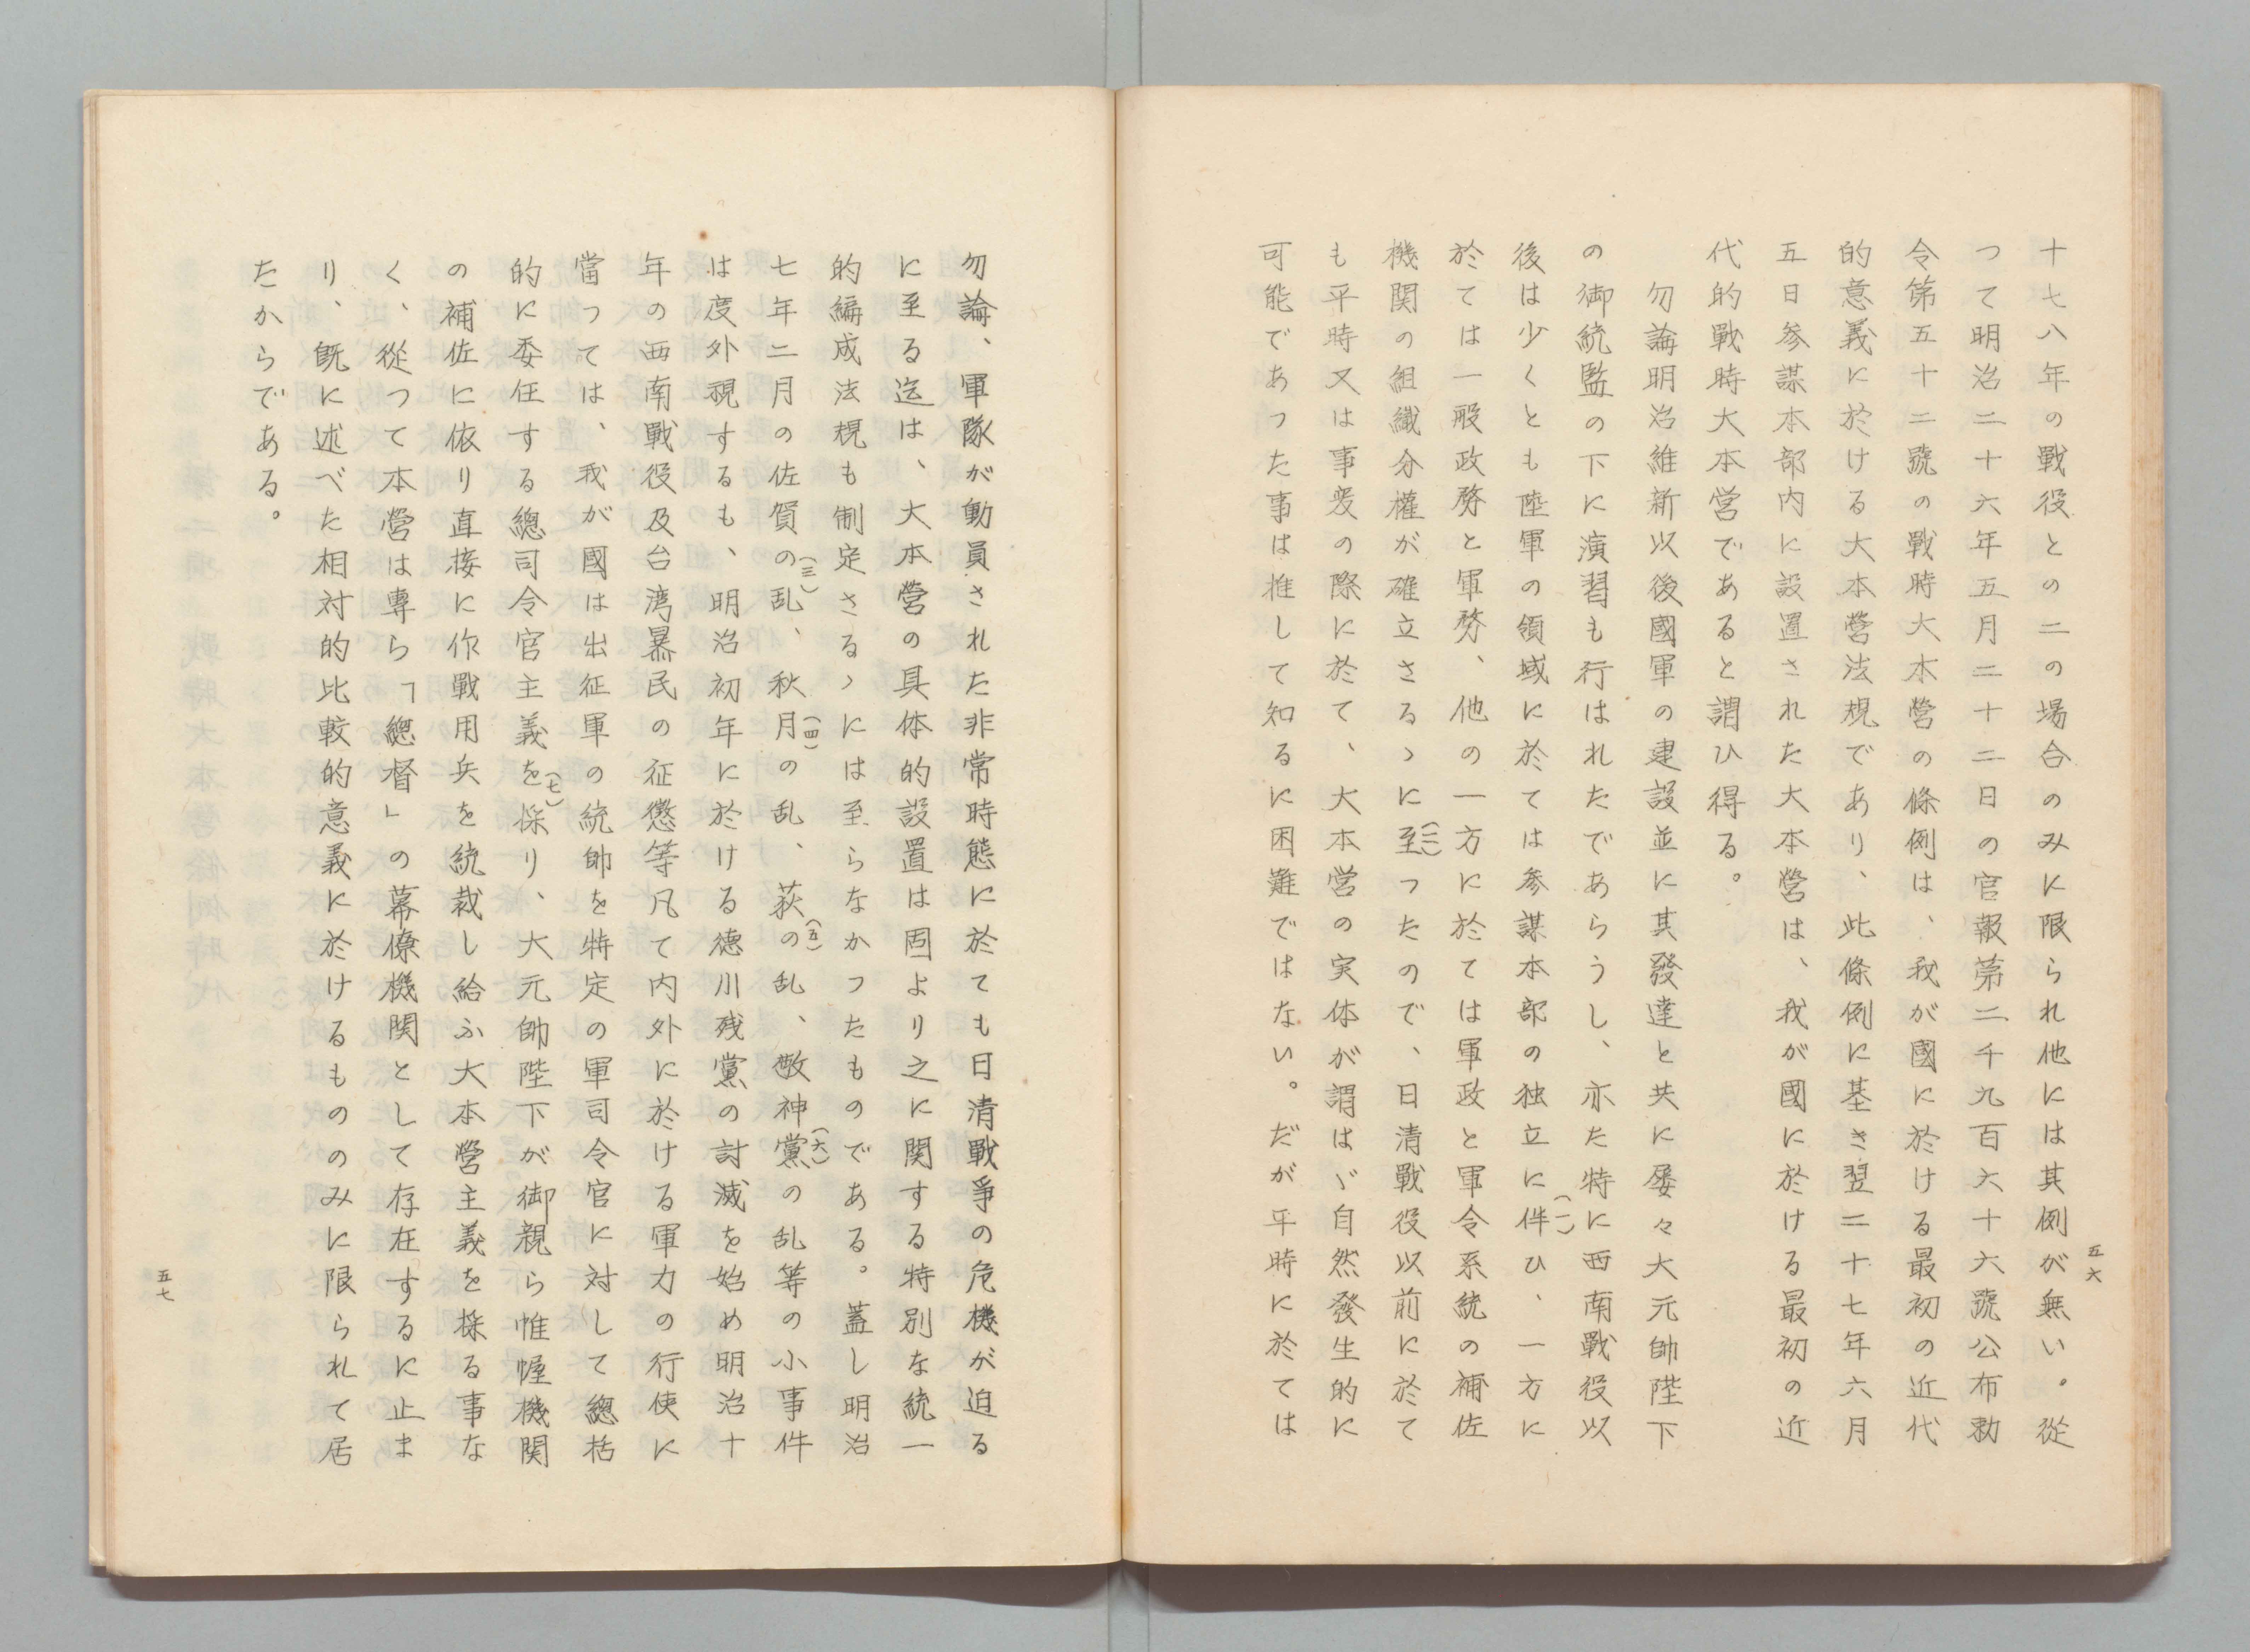 十七八年の戰役との二の場合のみに限られ他には其例が無い。從
つて明治二十六年五月二十二日の官報第二千九百六十六號公布勅
令第五十二號の戰時大本營の條例は、我が國に於ける最初の近代
的意義に於ける大本營法規であり、此條例に基き翌二十七年六月
五日参謀本部内に設置された大本營は、我が國に於ける最初の近
代的戰時大本営であると謂ひ得る。
勿論明治維新以後國軍の建設並に其發達と共に屡々大元帥陛下
の御統監の下に演習も行はれたであらうし、亦た特に西南戰役以
後は少くとも陸軍の領域に於ては参謀本部の独立に伴(一)ひ、一方に
於ては一般政務と軍務、他の一方に於ては軍政と軍令系統の補佐
機関の組織分權が確立さるゝに至(二)つたので、日清戰役以前に於て
も平時又は事変の際に於て、大本営の実体が謂はゞ自然發生的に
可能であつた事は推して知るに困難ではない。だが平時に於ては
五六
勿論、軍隊が動員された非常時態に於ても日清戰爭の危機が迫る
に至る迄は、大本營の具体的設置は固より之に関する特別な統一
的編成法規も制定さるゝには至らなかつたものである。蓋し明治
七年二月の佐賀の(三)乱、秋月(四)の乱、萩の(五)乱、敬神黨(六)の乱等の小事件
は度外視するも、明治初年に於ける徳川残黨の討滅を始め明治十
年の西南戰役及台湾暴民の征懲等凡て内外に於ける軍力の行使に
當つては、我が國は出征軍の統帥を特定の軍司令官に対して總括
的に委任する總司令官主義を(七)採り、大元帥陛下が御親ら惟幄機関
の補佐に依り直接に作戰用兵を統裁し給ふ大本營主義を採る事な
く、從つて本營は專ら「總督」の幕僚機関として存在するに止ま
り、既に述べた相対的比較的意義に於けるもののみに限られて居
たからである。
五七